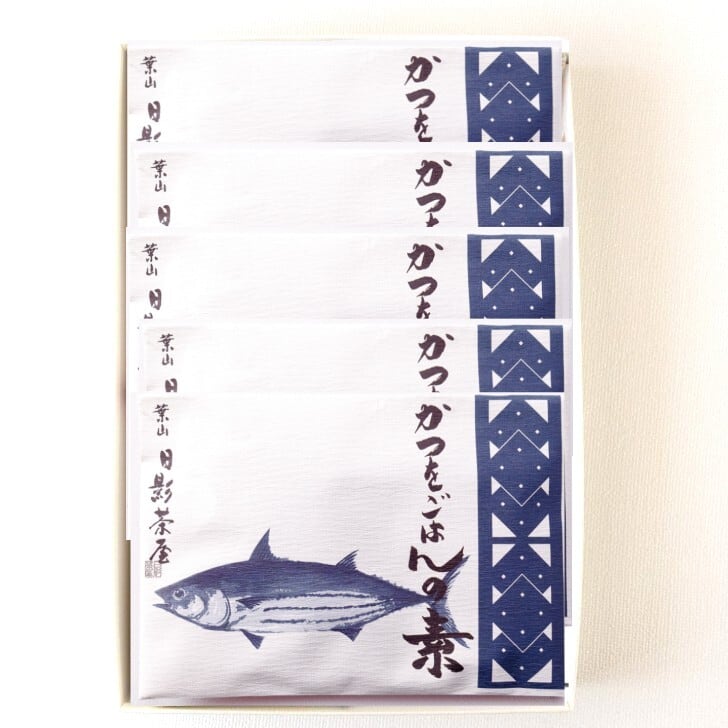 かつを
葉山 日影
かつを
葉山 日
かつを
葉山 日
かつを
葉山 日
かつをごはんの素
葉山 日影茶屋